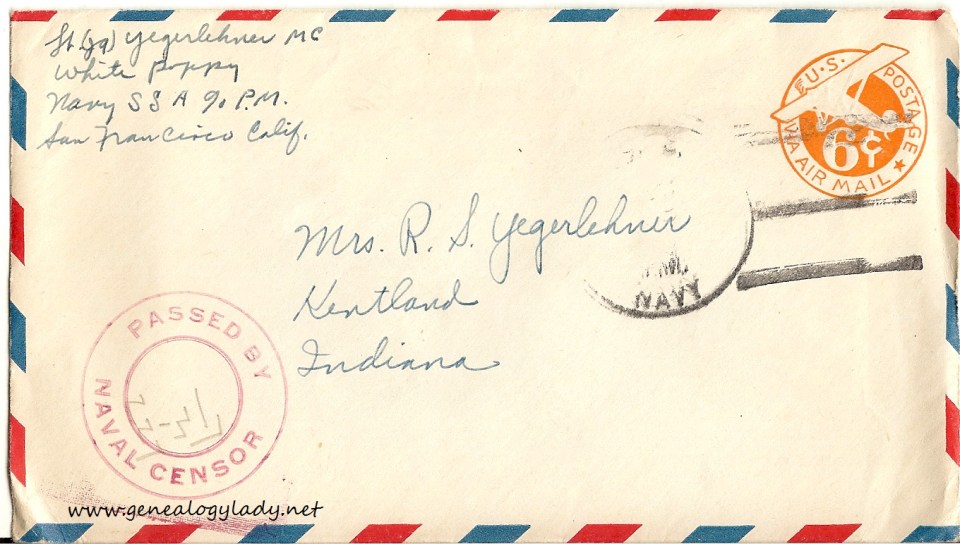 Lt (jg) Yegerlehner MC
White Poppy
Navy S S A % P.M.
San Francisco Calif.
U.S. POSTAGE
6¢
VIA AIR MAIL
Mrs. R. S. Yegerlehner
Kentland
Indiana
NAVY
PASSED BY
NAVAL CENSOR
www.genealogylady.net